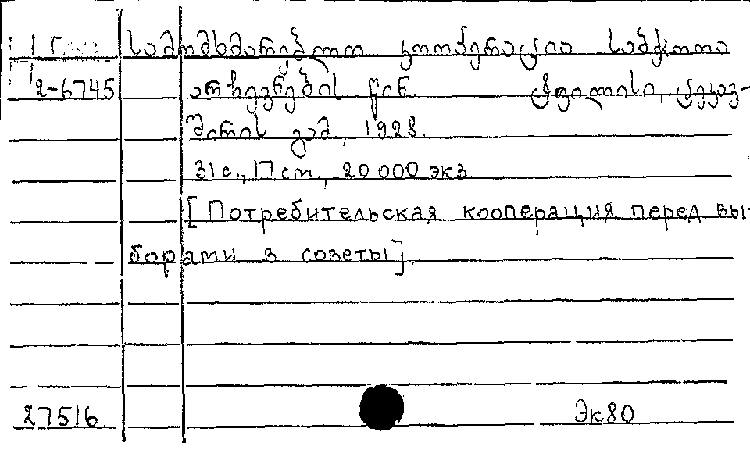 1 Груз სამომხმარებლო კოოპერაცია საბჭოთა
2-6745 არჩევნების წინ. ტფილისი, ცეკავ-
შირის გამ., 1928.
31 с., 17 cm., 20 000 экз
[Потребительская кооперация перед вы-
борами в советы]
27516 Эк80